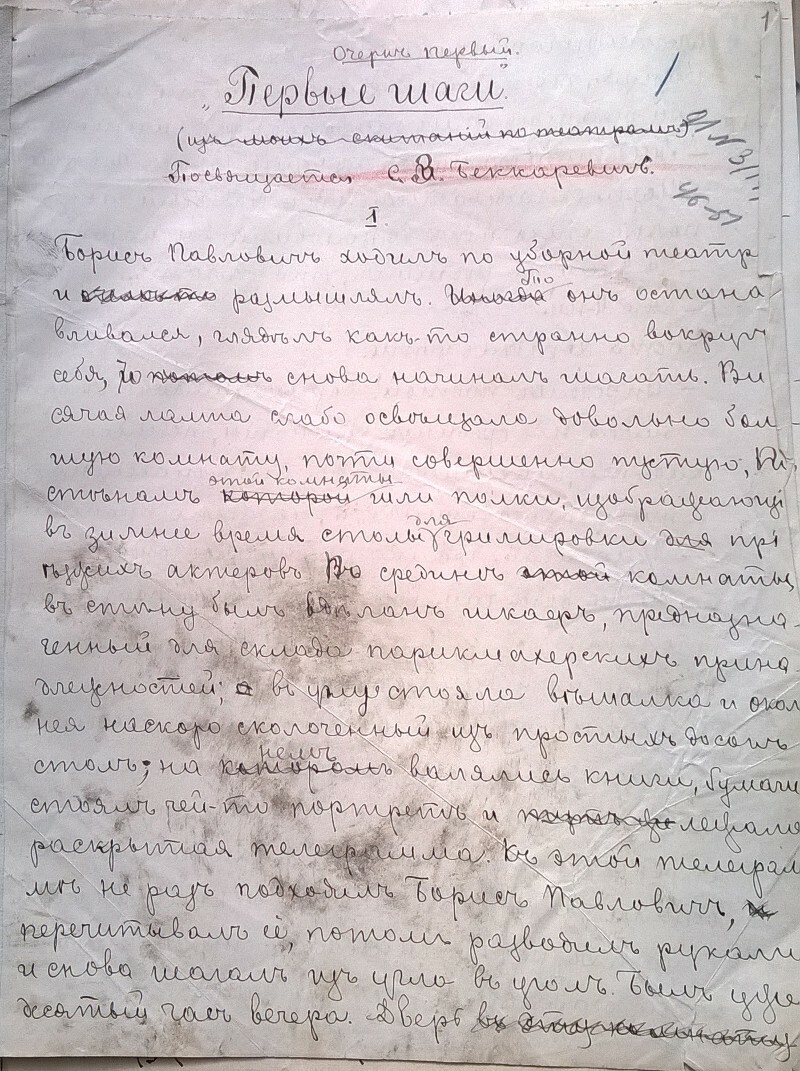 1
Очеркъ первый.
„Первые шаги".
(изъ моихъ скитаній по театрамъ)
Посвящается С. З. Беккаревичъ.
1.
Борисъ Павловичъ ходилъ по уборной театр
и размышлялъ. По онъ остана
вливался, глядѣлъ какъ-то странно вокругъ
себя, и потомъ снова начиналъ шагать. Ви
сячая лампа слабо освѣщала довольно бол
шую комнату, почти совершенно пустую, По
стѣнамъ этой комнаты которой шли полки, изображающі
въ зимнее время столы для гримировки для прі
ѣзжихъ актеровъ Во срединѣ этой комнаты,
въ стѣну былъ вдѣланъ шкафъ, предназна-
ченный для склада парикмахерскихъ прина
длежностей; а въ углу стояла вѣшалка и окол
нея наскоро сколоченный изъ простыхъ досокъ
столъ; на немъ которомъ валялись книги, бумаги
стоялъ чей-то портретъ и лежала
раскрытая телеграмма. Къ этой телеграм
мѣ не разъ подходилъ Борисъ Павловичъ,
перечитывалъ её, потомъ разводилъ руками
и снова шагалъ изъ угла въ уголъ. Былъ уже
десятый часъ вечера. Дверь въ эту комнату